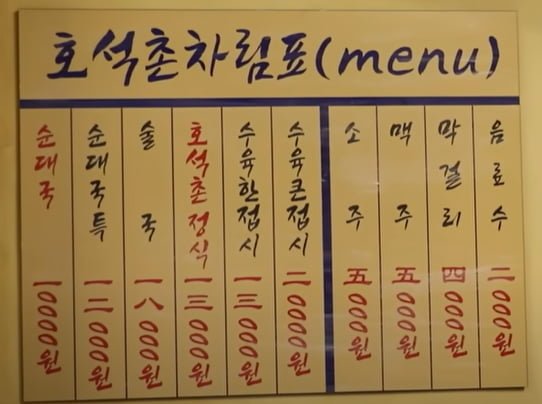 호석촌차림표(menu)
순대국 一0000원
순대국특 一二000원
술국 一八000원
호석촌정식 一三000원
수육한접시 一三000원
수육큰접시 二0000원
소주 五000원
맥주 五000원
막걸리 四000원
음료수 二000원